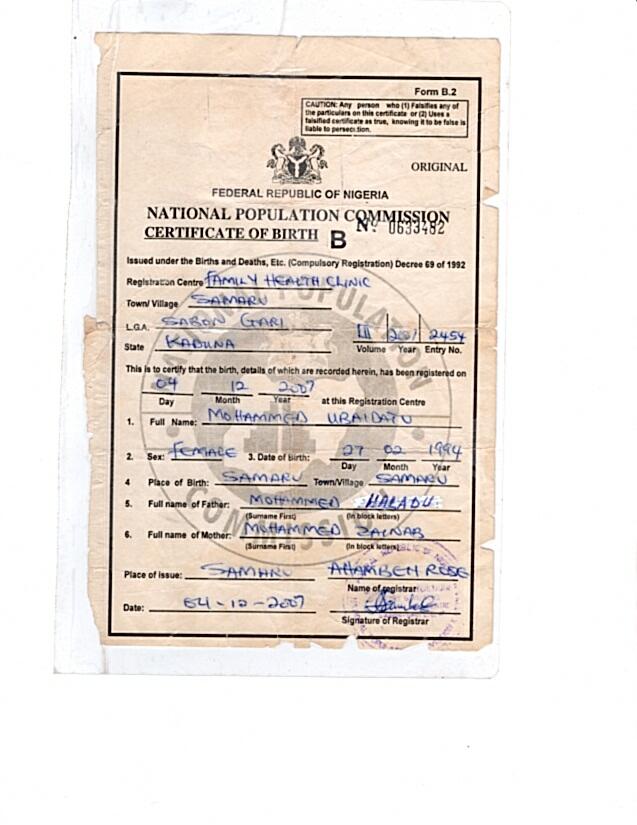 Form B.2
CAUTION: Any person who (1) Falsifies any of
the particulars on this certificate or (2) Uses a
falsified certificate as true, knowing it to be false is
liable to persecution.
ORIGINAL
FEDERAL REPUBLIC OF NIGERIA
NATIONAL POPULATION COMMISSION
CERTIFICATE OF BIRTH B No. 0633482
Issued under the Births and Deaths, Etc. (Compulsory Registration) Decree 69 of 1992
Registration Centre FAMILY HEALTH CLINIC
Town/ Village SAMARU
L.G.A. SABON GARI
III 2007 2454
State KADUNA Volume Year Entry No.
This is to certify that the birth, details of which are recorded herein, has been registered on
04 12 2007
Day Month Year at this Registration Centre
1. Full Name: MOHAMMED UBAIDATU
2. Sex: FEMALE 3. Date of Birth: 27 02 1994
Day Month Year
4 Place of Birth: SAMARU Town/Village SAMARU
5. Full name of Father: MOHAMMED HALADU
(Surname First) (In block letters)
6. Full name of Mother: MOHAMMED ZAINAB
(Surname First) (In block letters)
Place of issue: SAMARU AHAMBEH ROSE
Name of registrar
Date: 04-12-2007
Signature of Registrar
NATIONAL POPULATION COMMISSION